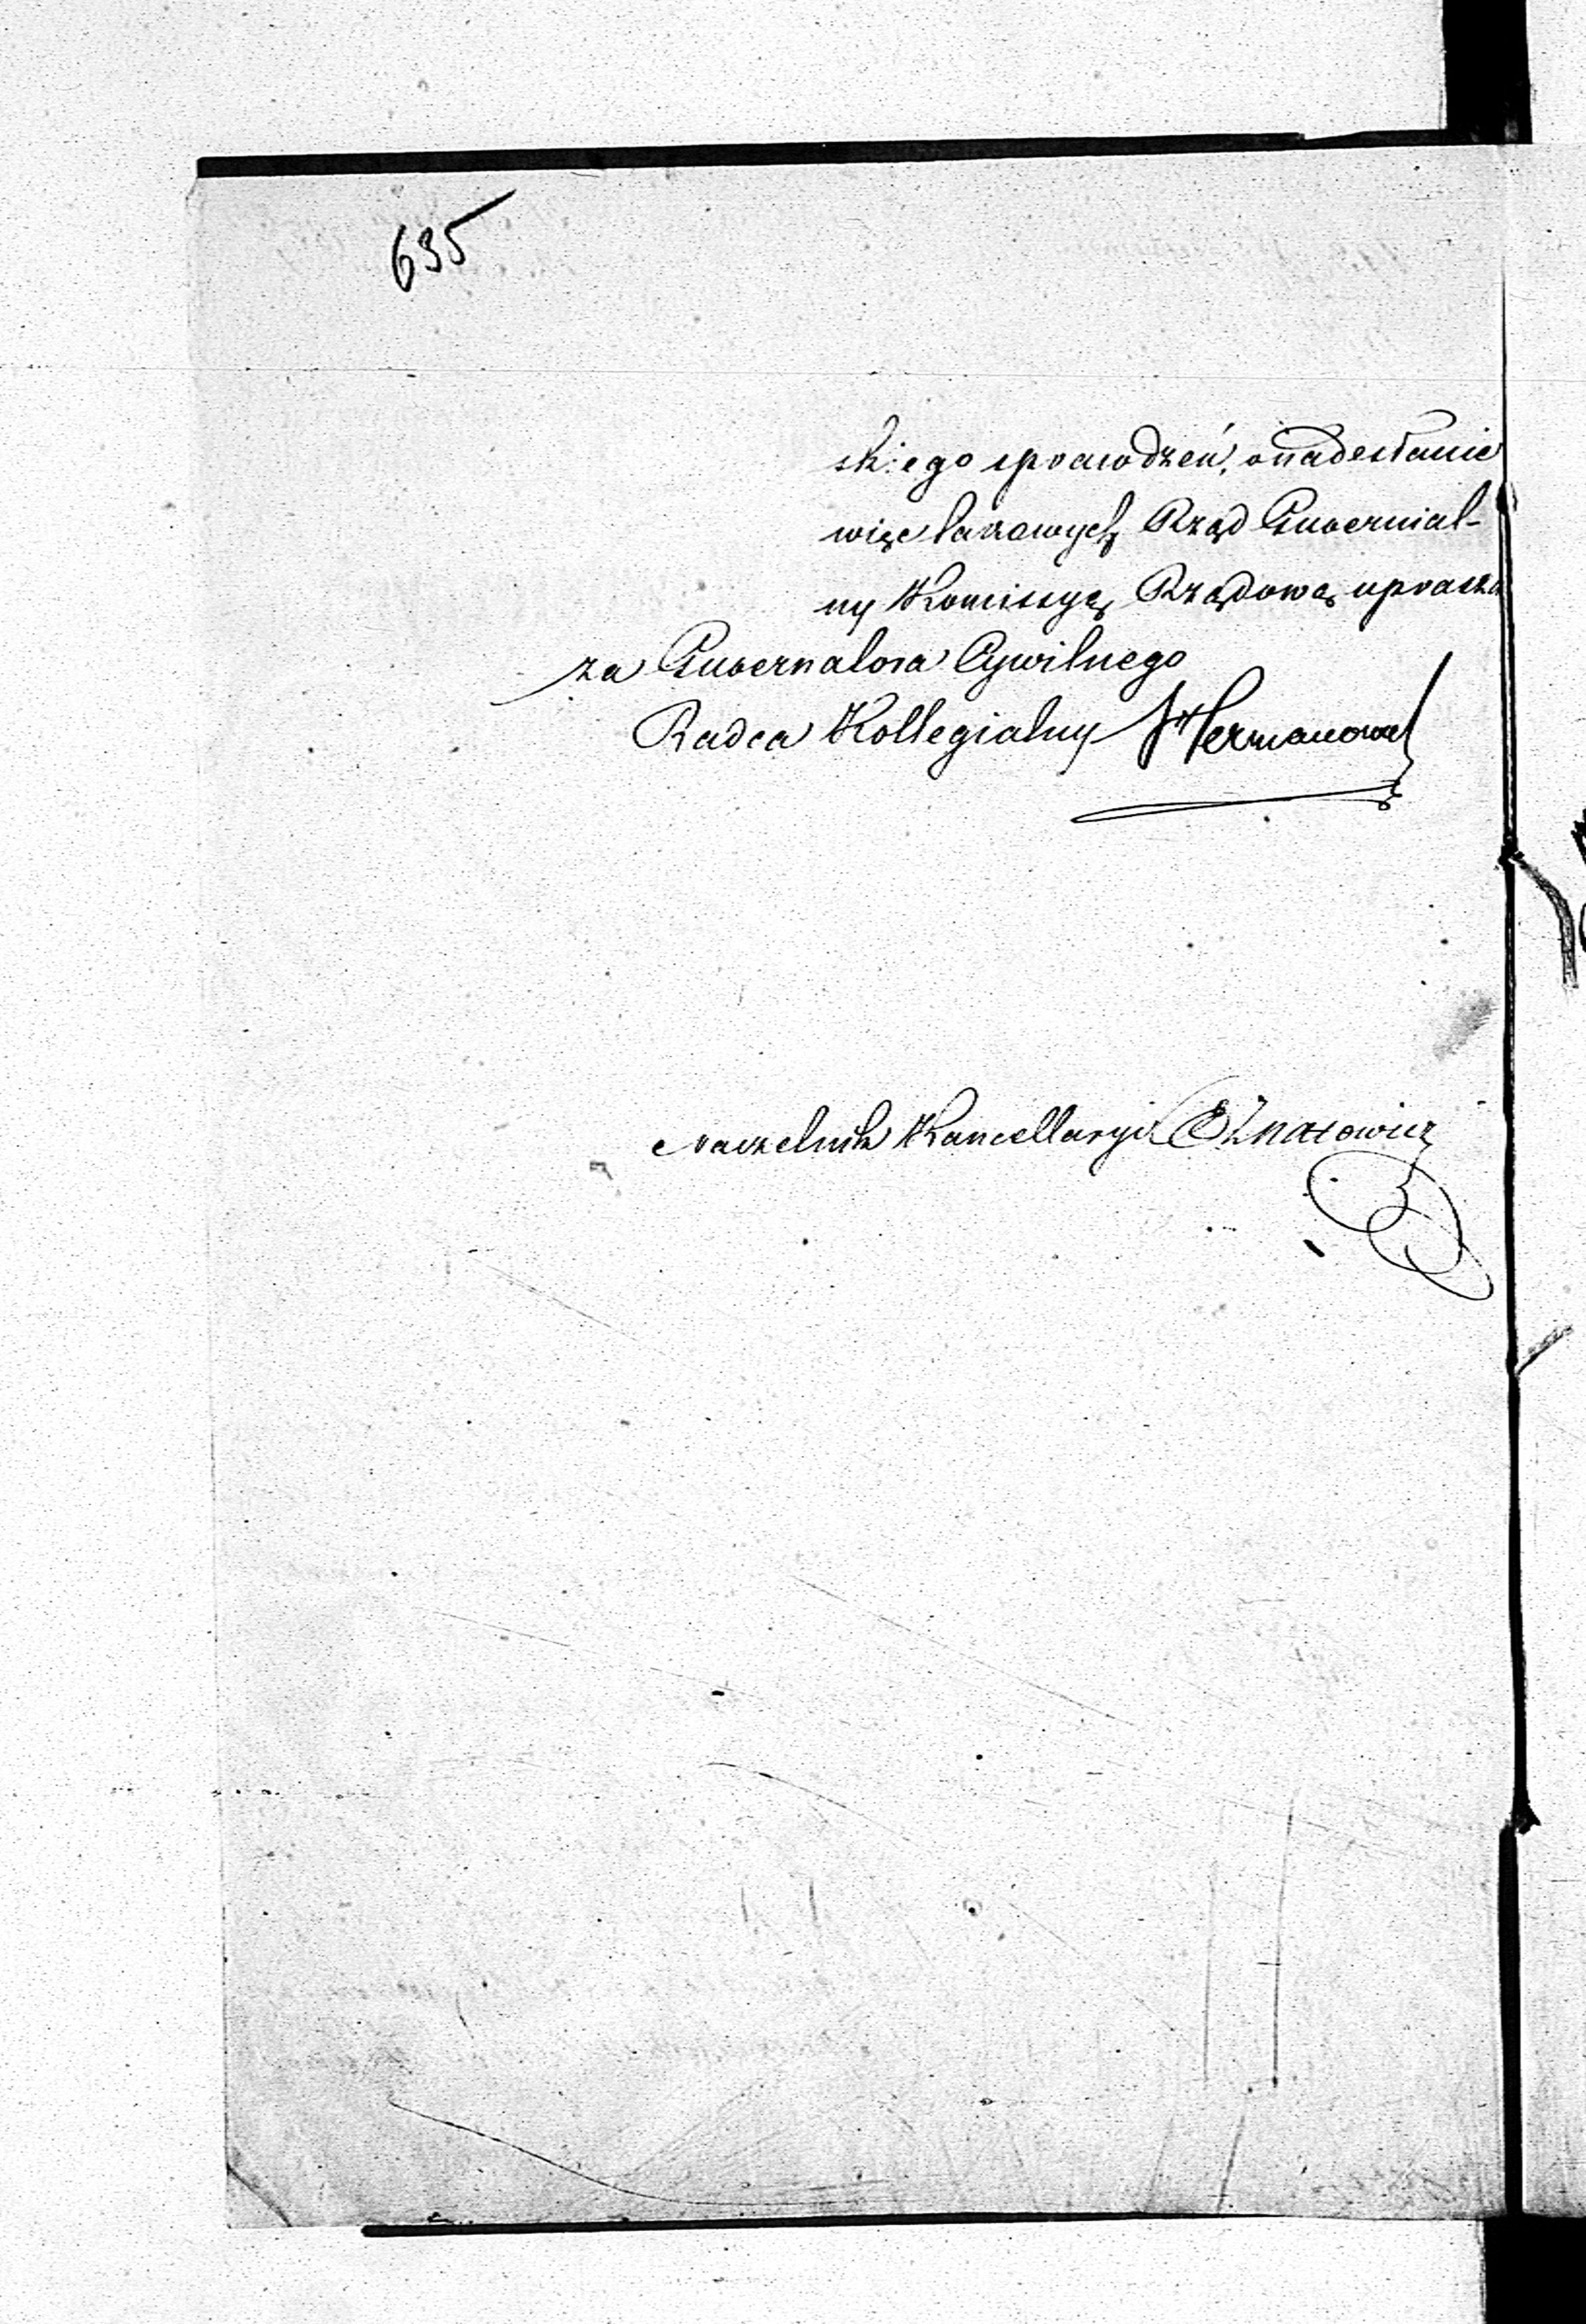 635
skiego sprawdzeń, o nadesłanie
więc takowych Rząd Gubernial-
ny Komissyę Rządową uprasza
za Gubernatora Cywilnego
Radca Kollegialny Hermanowa
Naczelnik Kancellaryi